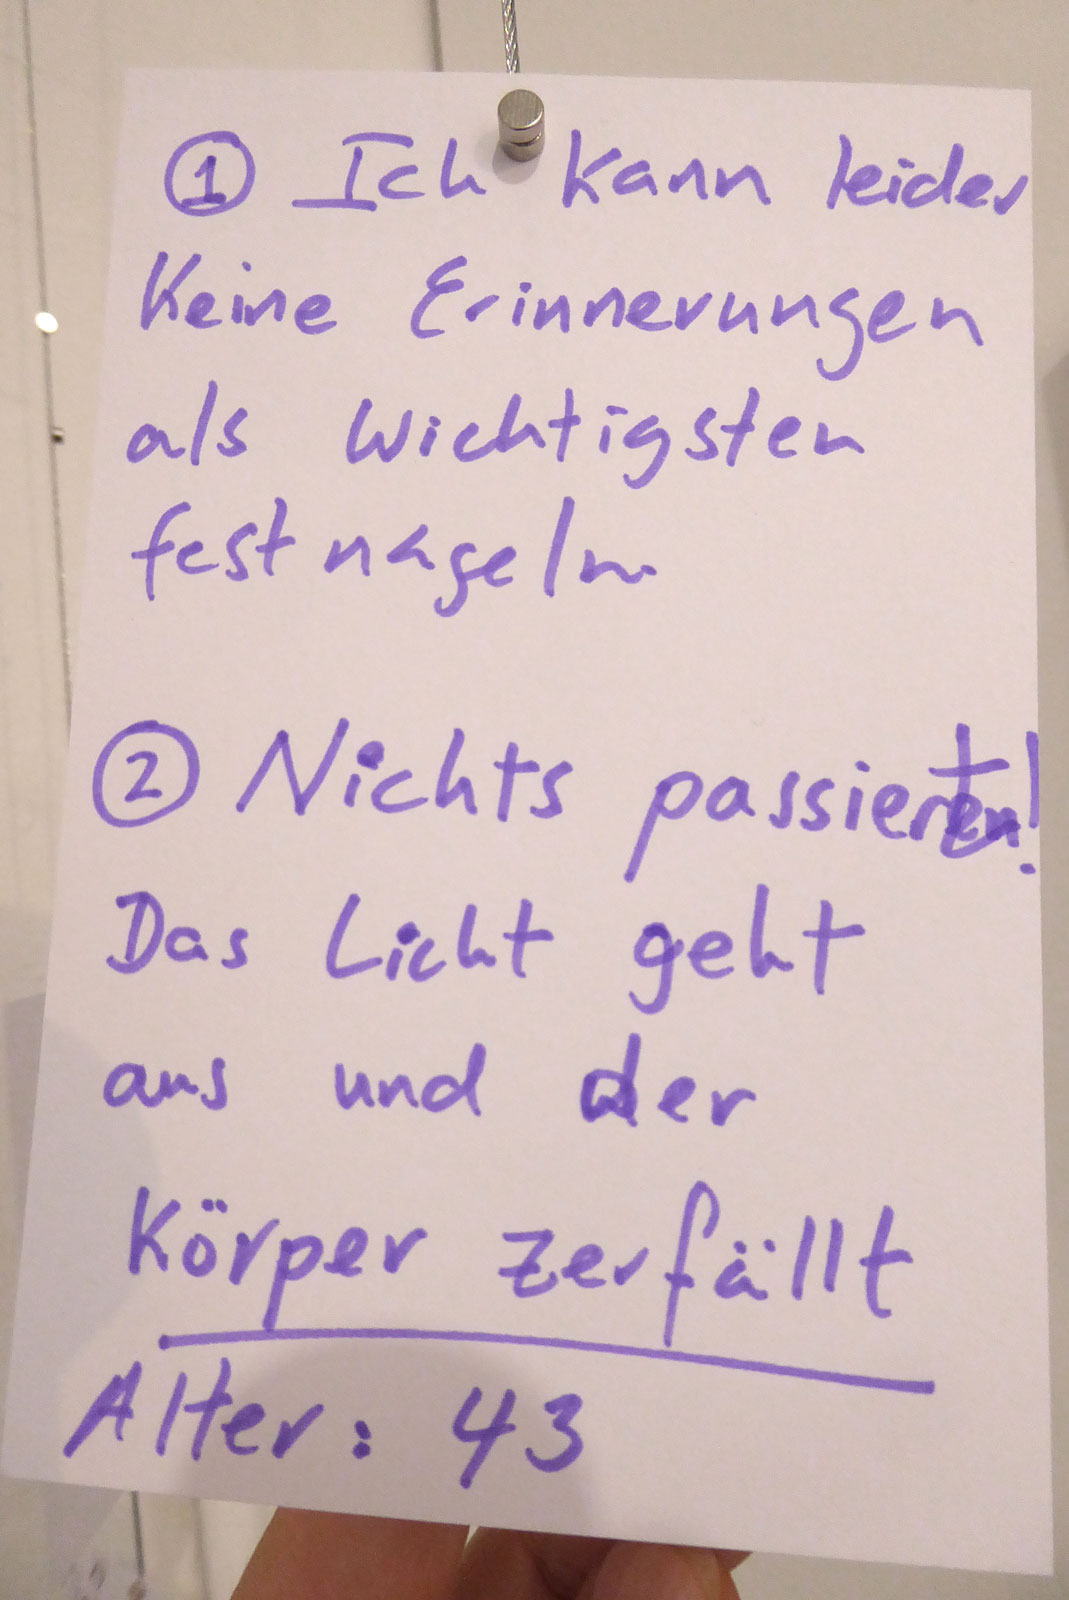 ① Ich kann leider
keine Erinnerungen
als wichtigsten
festnageln.
② Nichts passiert!
Das Licht geht
aus und der
Körper zerfällt
Alter: 43